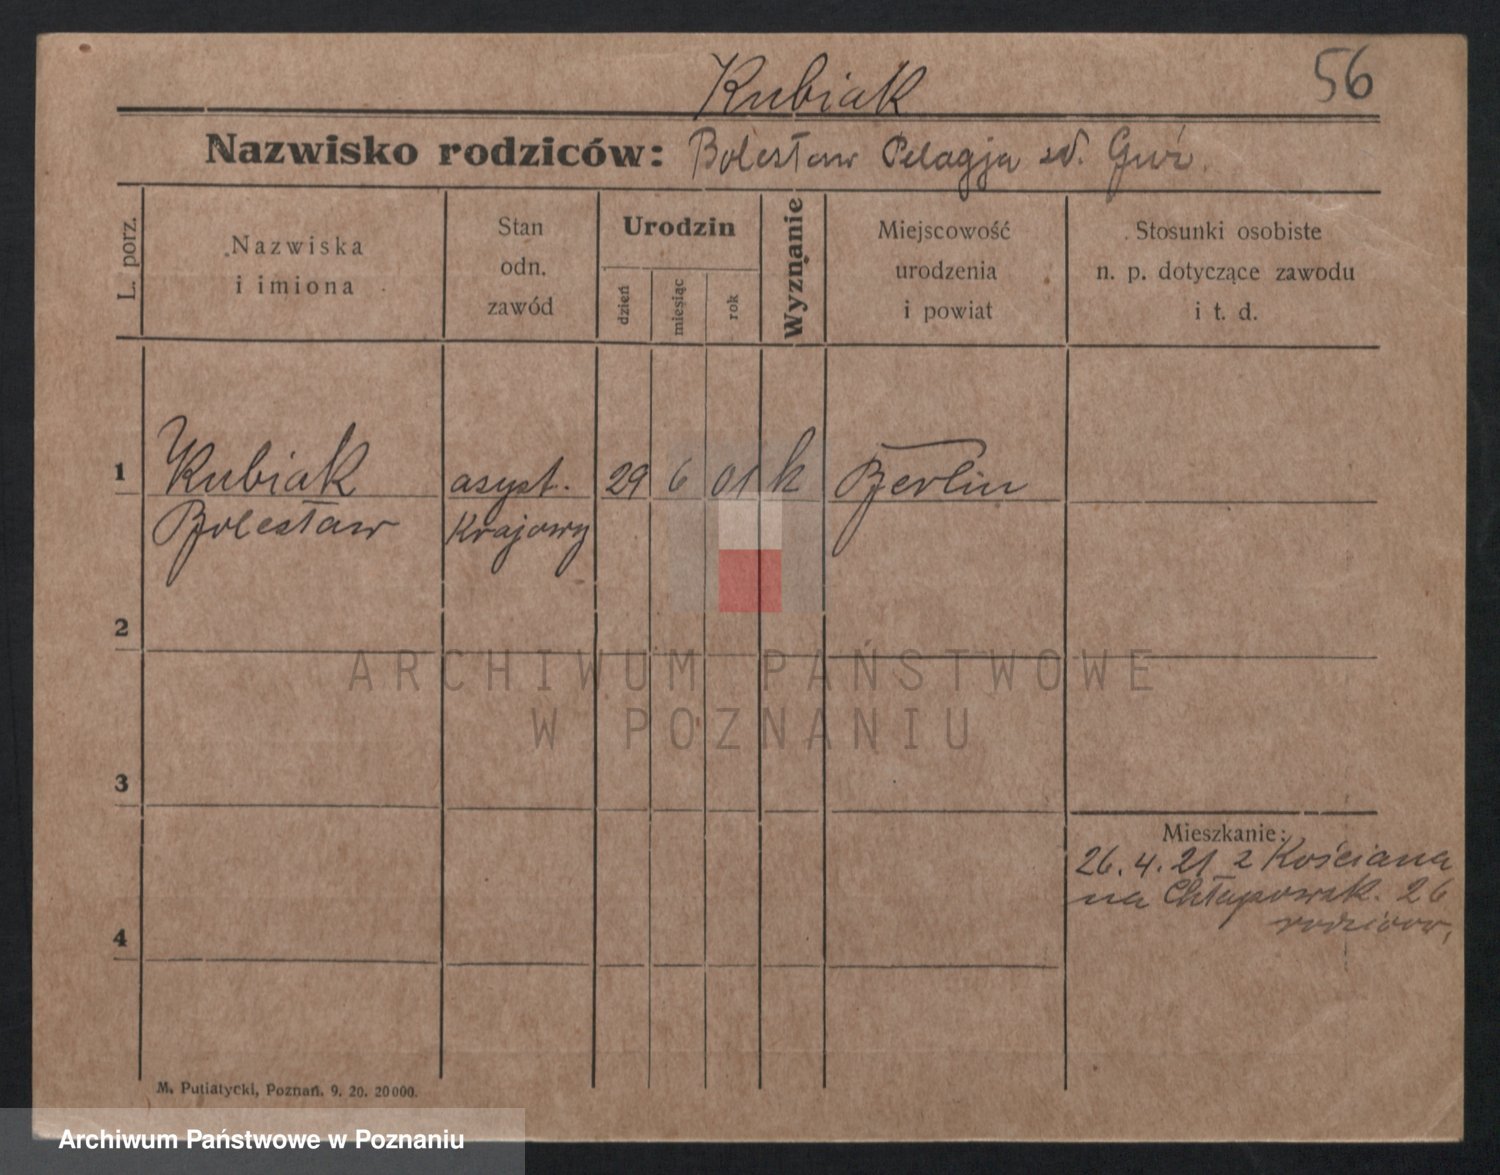 56
Kubiak
Nazwisko rodziców: Bolesław Pelagja
L. porz.
Nazwiska
i imiona
Stan
odn.
zawód
Urodzin
dzień
miesiąc
rok
Wyznanie
Miejscowość
urodzenia
i powiat
Stosunki osobiste
n. p. dotyczące zawodu
i t. d.
1 Kubiak asyst. 29 6 01 k Berlin
Bolesław Krajowy
2
ARCHIWUM PAŃSTWOWE
W POZNANIU
3
Mieszkanie:
26.4.21 z Kościana
na Chłapowsk. 26
rodziców,
4
M. Putiatycki, Poznań. 9. 20. 20000.
Archiwum Państwowe w Poznaniu